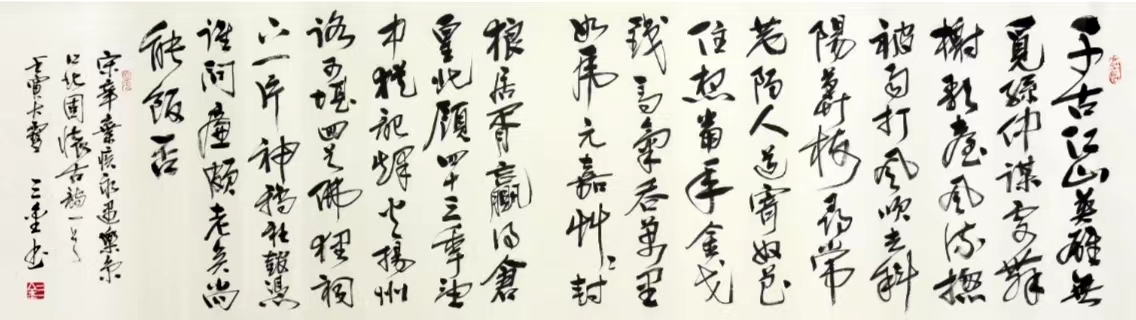 千古江山英雄無
覓孫仲謀處舞
榭歌臺風流總
被雨打風吹去斜
陽草樹尋常
巷陌人道寄奴曾
住想當年金戈
鐵馬氣吞萬里
如虎元嘉艸艸封
狼居胥贏得倉
皇北顧四十三年望
中猶記烽火揚州
路可堪回首佛狸祠
下一片神鴉社鼓憑
誰問廉頗老矣尚
能飯否
宋辛棄疾永遇樂京
口北固懷古一首
壬寅大雪 三金書